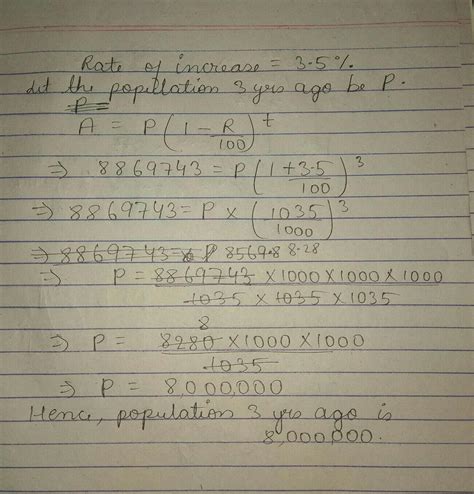 Rate of increase = 3.5%.
Let the popullation 3 yrs ago be P.
P =
A = P(1 - R/100)^t
⇒ 8869743 = P(1+3.5/100)^3
⇒ 8869743 = P × (1035/1000)^3
⇒ 8869743 = P 8569.8 8.28
⇒ P = 8869743 × 1000 × 1000 × 1000
1035 × 1035 × 1035
8
⇒ P = 8280 × 1000 × 1000
1035
⇒ P = 8,000,000
Hence, population 3 yrs ago is
8,000,000.